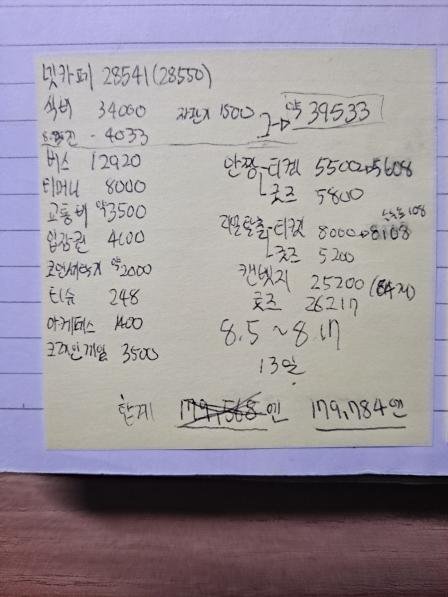 넷카페 28541 (28550)
식비 34000 자판기 1500 → 약 39533
4033
버스 12920
티머니 8000
교통비 약 3500
입장권 4100
코인세탁기 약 2000
티슈 248
아케페스 1400
코인 3500
티켓 5500→5608
굿즈 5800
탈출-티켓 8000→8108
수수료 108
굿즈 5200
캔뱃지 25200 (84개)
굿즈 26217
8.5 ~ 8.17
13일
합계 179,568엔 179,784엔